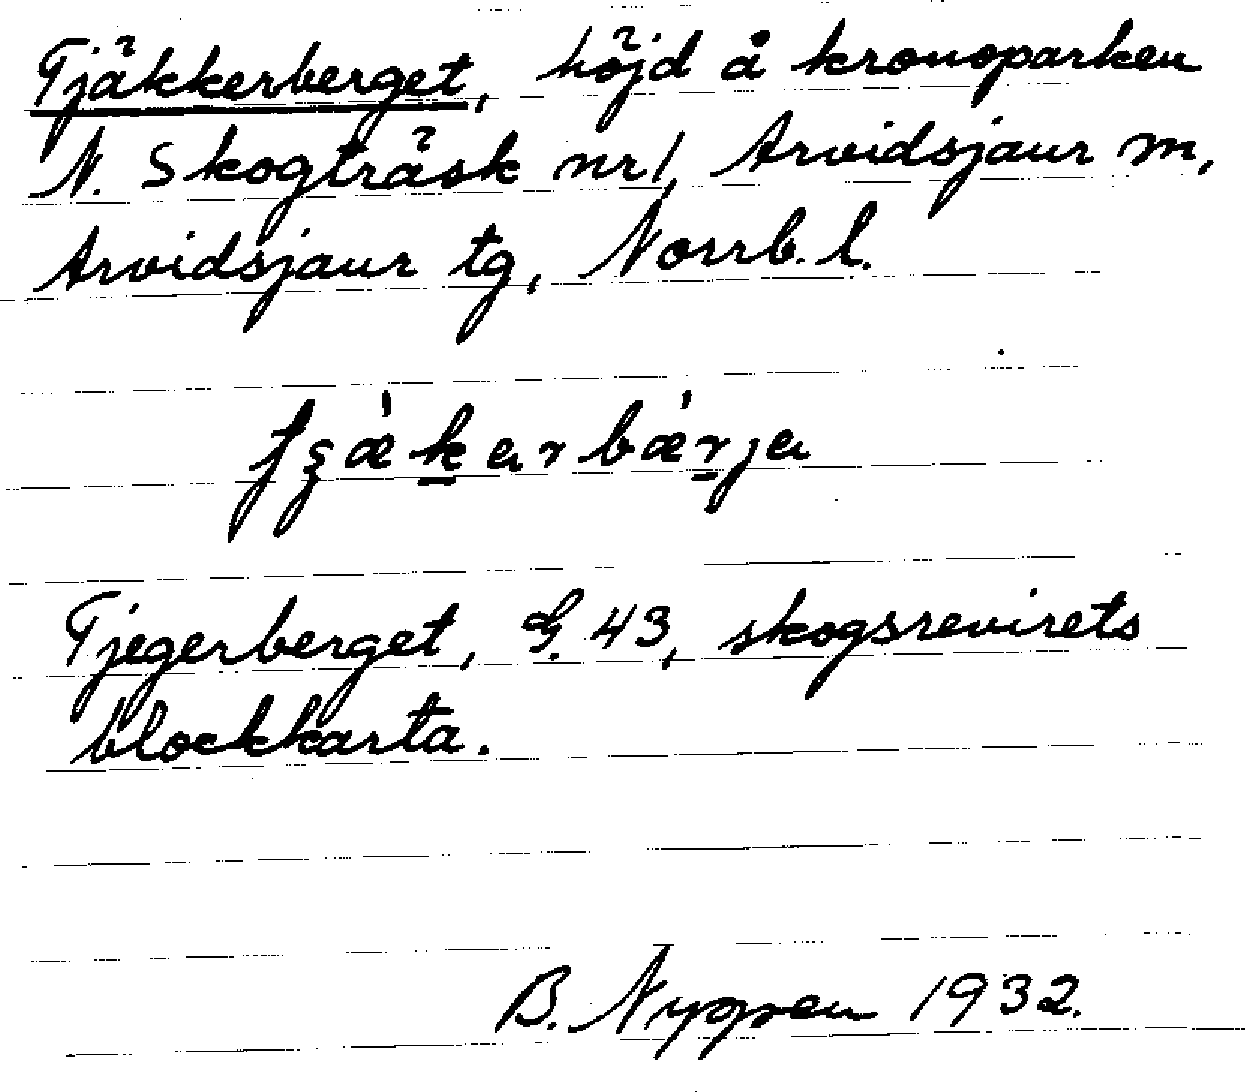 Tjäkkerberget, höjd å kronoparken
N. Skogträsk nr 1, Arvidsjaur m,
Arvidsjaur tg, Norrb. l.
Tjegerberget, G. 43, skogsrevirets
blockkarta.
B. Nygren 1932.